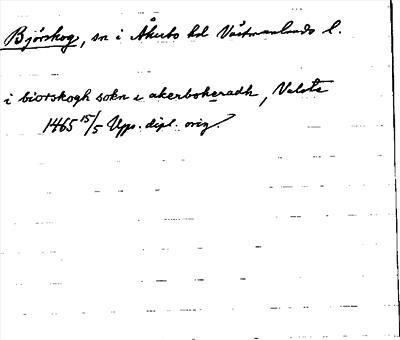 Björskog, sn i Åkerbo hd Västmanlands l.
i biorskogh sokn i akerboheradh, Valsta
1465 15/5 Upps. dipl. orig.